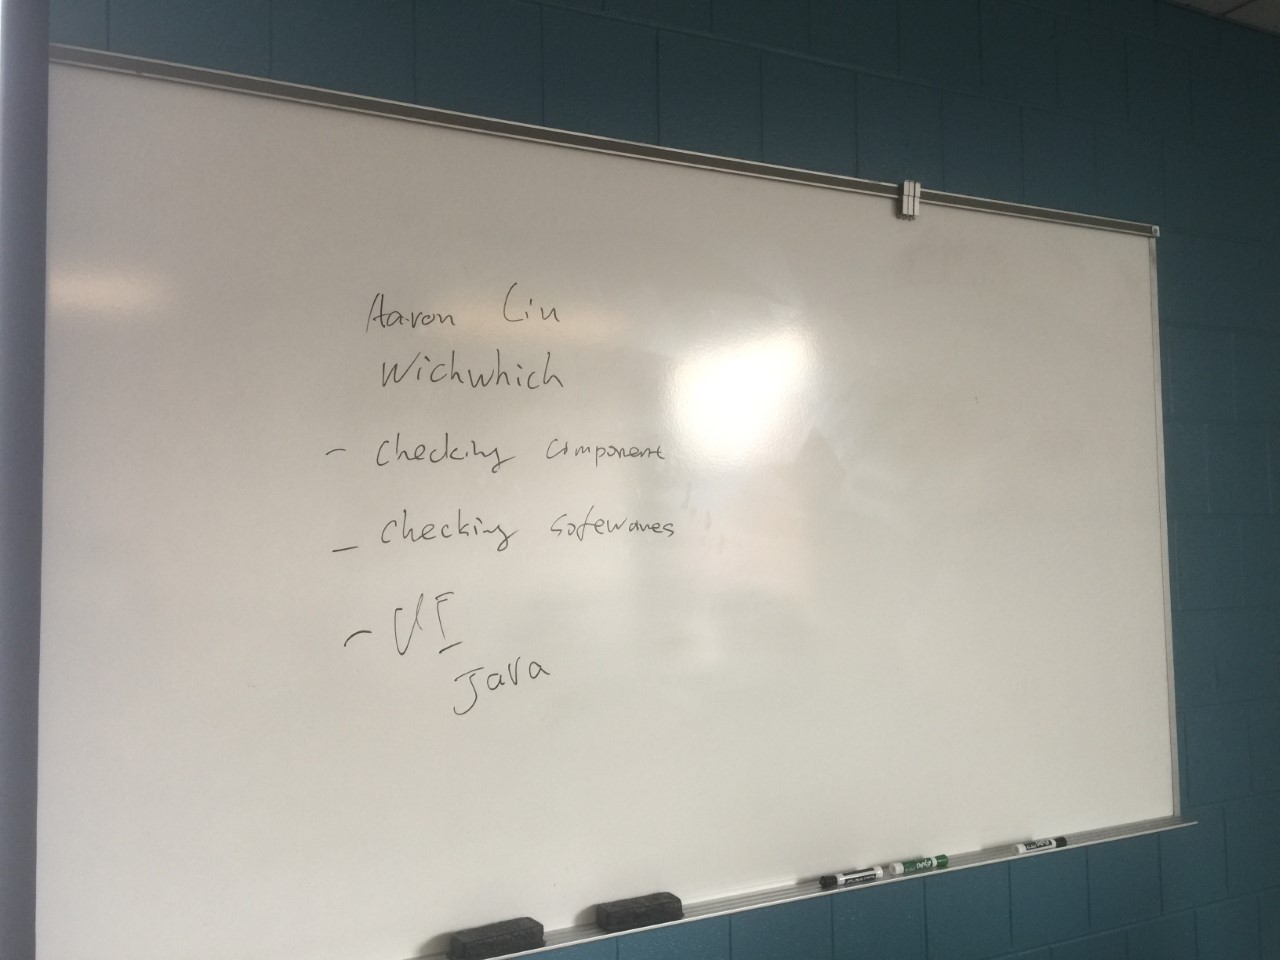 Aaron Liu
Wichwhich
- checking component
- checking sofewares
- UI
Java